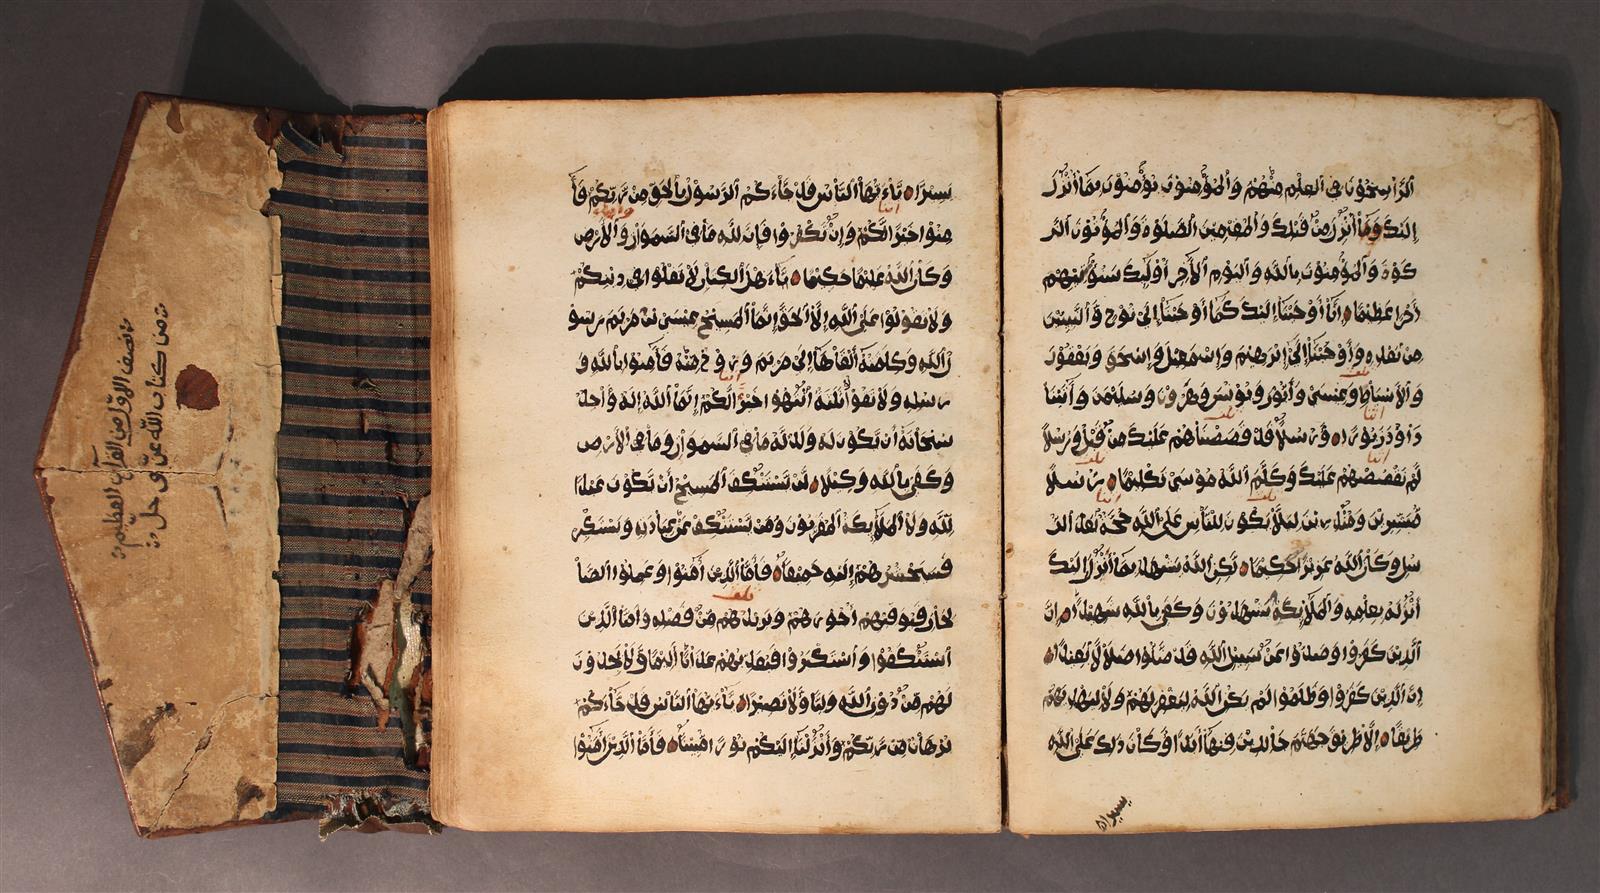 الراسخون في العلم منهم والمؤمنون يؤمنون بما أنزل
إليك وما أنزل من قبلك والمقيمين الصلوة والمؤتون الز
كوة والمؤمنون بالله واليوم الأخر أوليك سنؤتيهم
أجرا عظيما إنا أوحينا إليك كما أوحينا إلى نوح والنبيين
من بعده وأوحينا إلى إبرهيم وإسمعيل وإسحق ويعقوب
والأسباط وعيسى وأيوب ويونس وهرون وسليمن وأتينا
داوود زبورا ورسلا قد قصصناهم عليك من قبل ورسلا
لم نقصصهم عليك وكلم الله موسى تكليما رسلا
مبشرين ومنذرين ليلا يكون للناس على الله حجة بعد الر
سل وكان الله عزيزا حكيما لكن الله يشهد بما أنزل إليك
أنزله بعلمه والملايكة يشهدون وكفى بالله شهيدا إن
الذين كفروا وصدوا عن سبيل الله قد ضلوا ضلالا بعيدا
إن الذين كفروا وظلموا لم يكن الله ليغفر لهم ولا ليهديهم
طريقا إلا طريق جهنم خالدين فيها أبدا وكان ذلك على الله
يسيرا
يسيرا ياءيها الناس قد جاءكم الرسول بالحق من ربكم فأ
منوا خيرا لكم وإن تكفروا فإن لله ما في السموات والأرض
وكان الله عليما حكيما ياءهل الكتاب لا تغلوا في دينكم
ولا تقولوا على الله إلا الحق إنما المسيح عيسى ابن مريم رسو
ل الله وكلمته ألقاها إلى مريم وروح منه فأمنوا بالله و
رسله ولا تقولوا ثلثة انتهوا خيرا لكم إنما الله إله واحد
سبحانه أن يكون له ولد له ما في السموات وما في الأرض
وكفى بالله وكيلا لن يستنكف المسيح أن يكون عبدا
لله ولا الملايكة المقربون ومن يستنكف عن عبادته ويستكبر
فسيحشرهم إليه جميعا فأما الذين أمنوا وعملوا الصا
لحات فيوفيهم أجورهم ويزيدهم من فضله وأما الذين
استنكفوا واستكبروا فيعذبهم عذابا أليما ولا يجدون
لهم من دون الله وليا ولا نصيرا ياءيها الناس قد جاءكم
برهان من ربكم وأنزلنا إليكم نورا مبينا فأما الذين أمنوا
نصف الاول من القرآن العظيم
من كتاب الله عز وجل